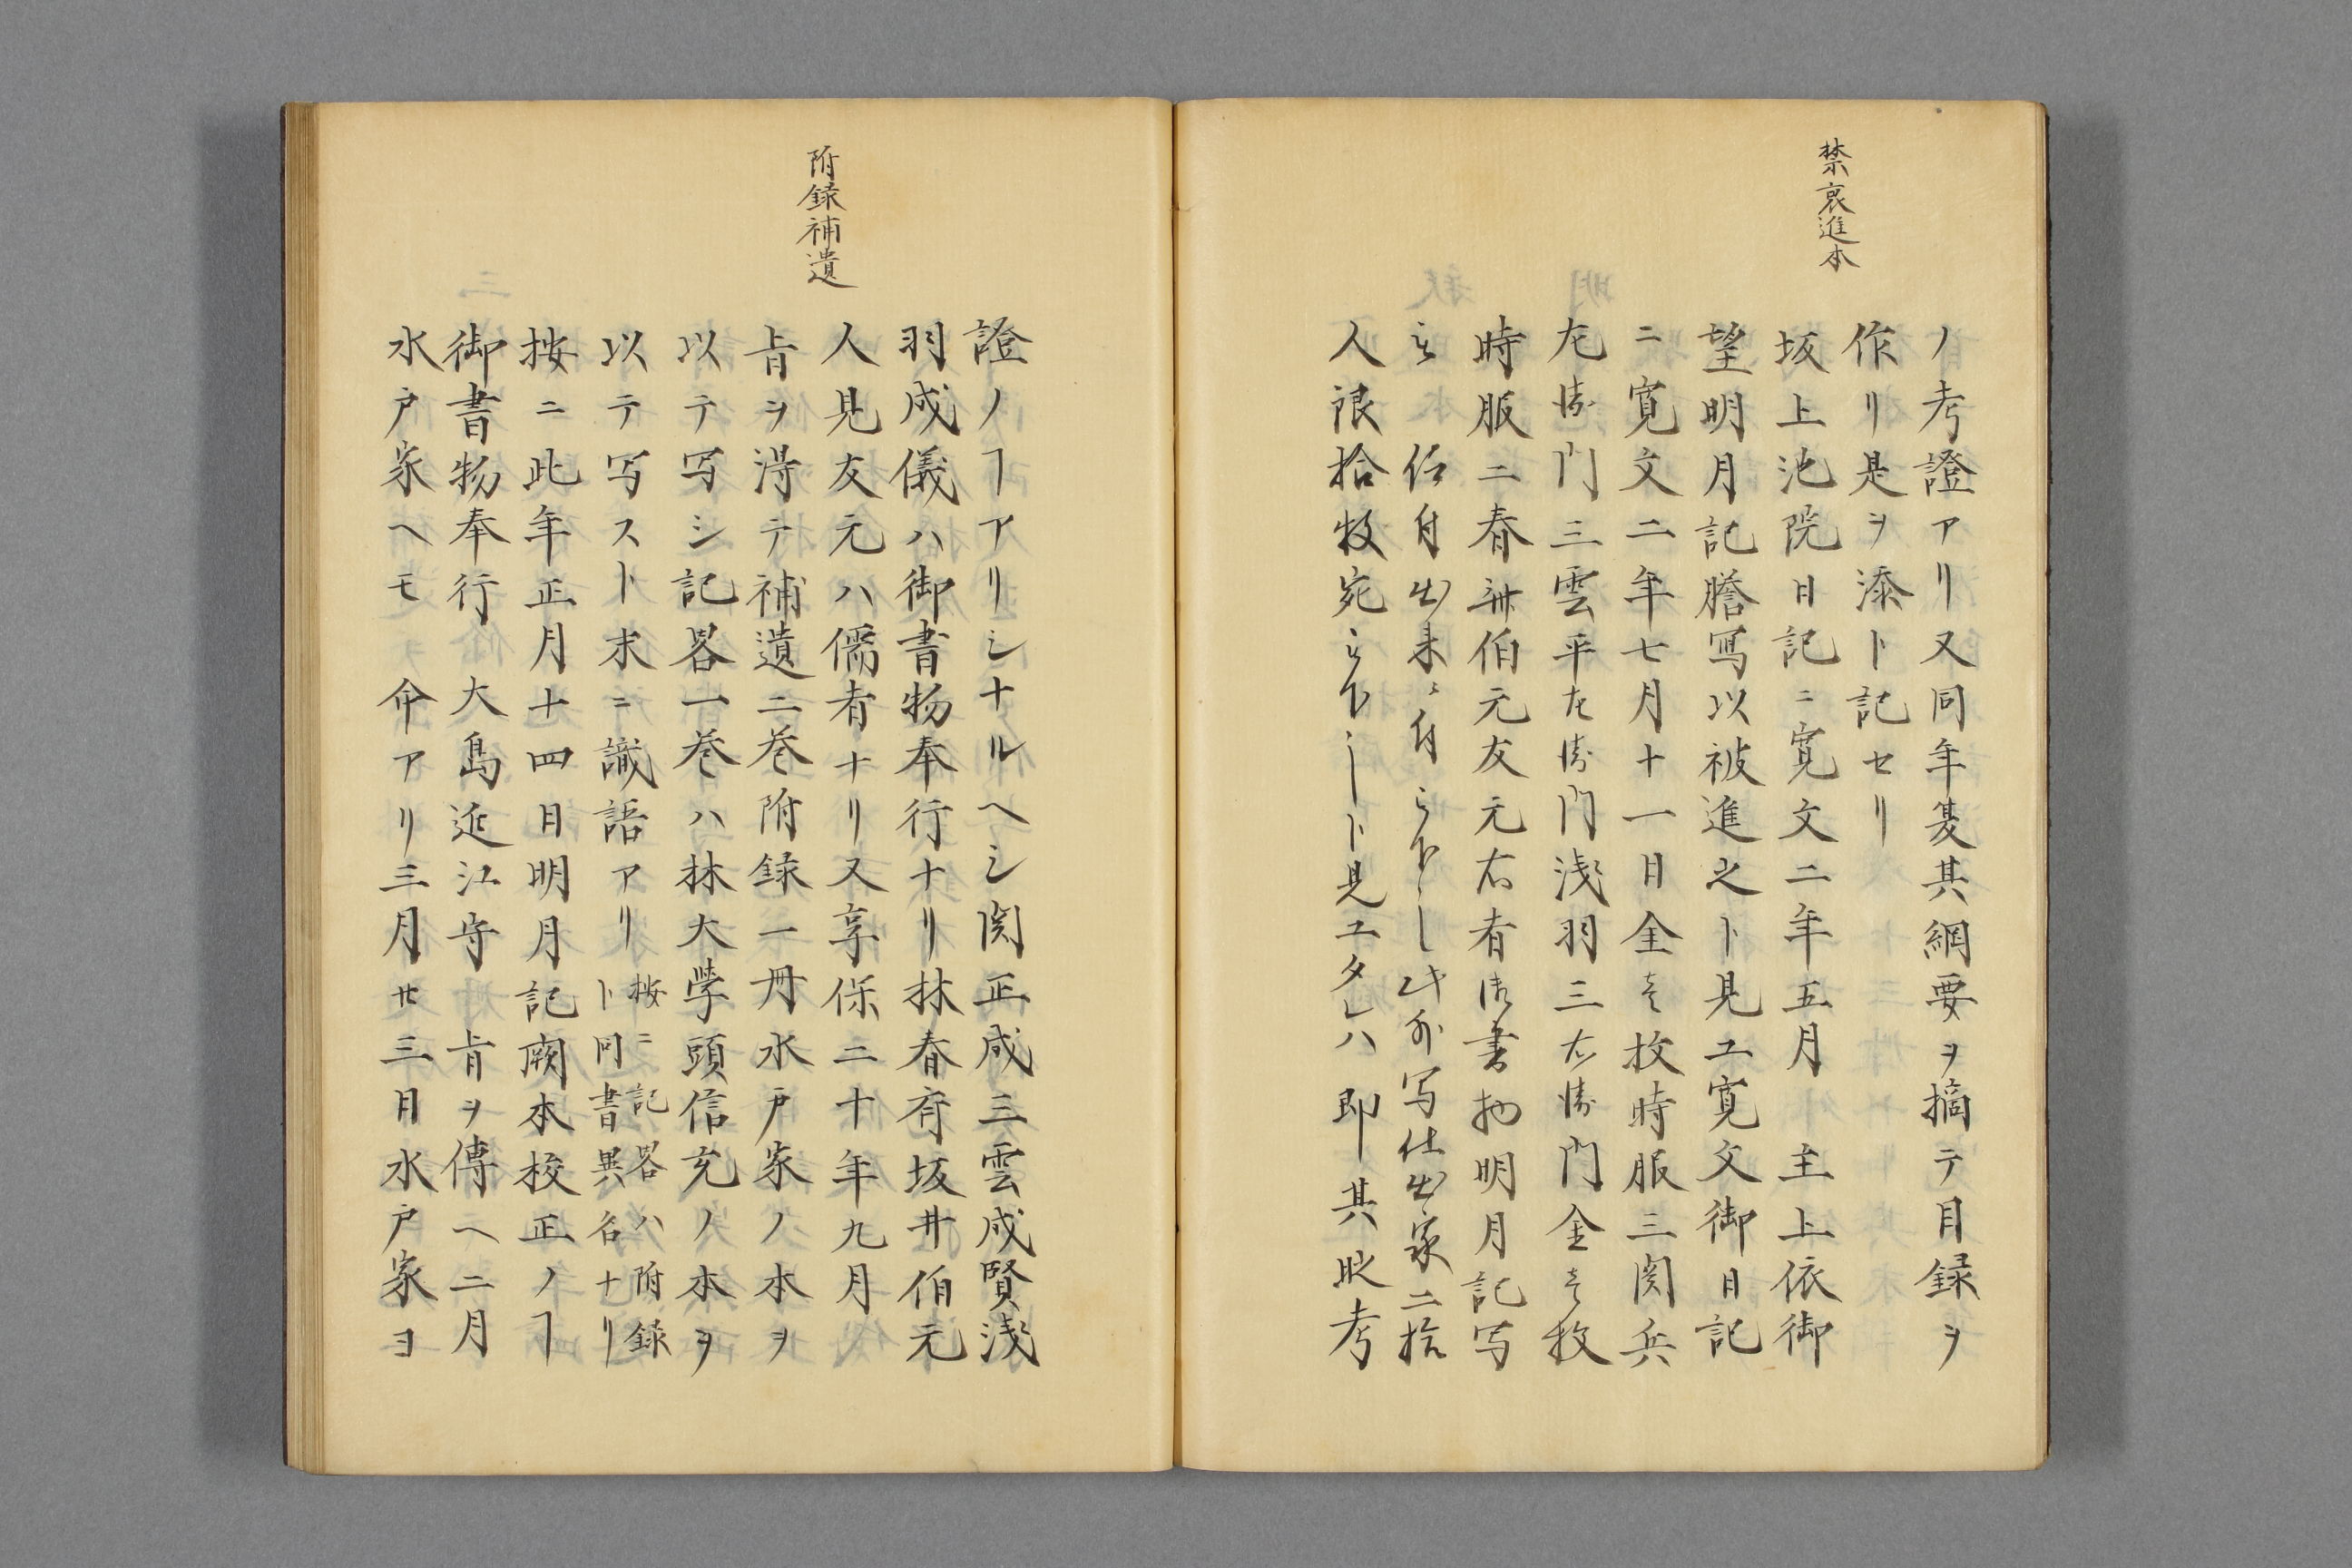 禁裏進本
ノ考證アリ又同年夏其綱要ヲ摘テ目録ヲ
作リ是ヲ添ト記セリ
坂上池院日記ニ寛文二年五月 主上依御
望明月記謄寫以被進之ト見ユ寛文御日記
ニ寛文二年七月十一日金壱枚時服三関兵
左衛門三雲平左衛門浅羽三右衛門金壱枚
時服二春斎伯元友元右者御書物明月記写
仕付出来ニ付被下之此外写仕出家二拾
人銀拾枚宛被下之ト見エタレハ即其時考
附録補遺
證ノヿアリシナルヘシ関正成三雲成賢浅
羽成儀ハ御書物奉行ナリ林春斎坂井伯元
人見友元ハ儒者ナリ又享保二十年九月
旨ヲ得テ補遺二巻附録一冊水戸家ノ本ヲ
以テ写シ記畧一巻ハ林大学頭信充ノ本ヲ
以テ写スト末ニ識語アリ 按ニ記畧ハ附録
ト同書異名ナリ
按ニ此年正月十四日明月記闕本校正ノヿ
御書物奉行 大島近江守 旨ヲ傳ヘ二月
水戸家ヘモ 命アリ三月廿三日水戸家ヨ